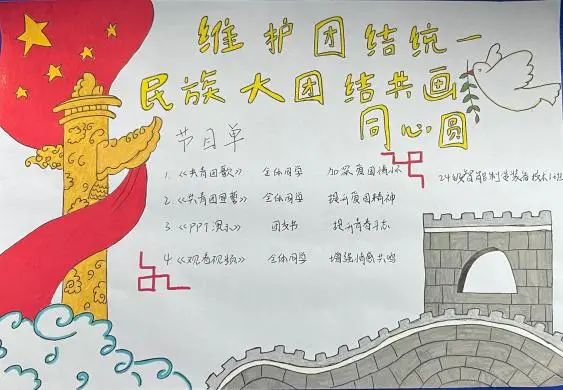 维护团结统一
民族大团结共画
同心圆
节目单
1. 《共青团歌》 全体同学 加深爱国情怀
24级智能制造装备技术1班
2. 《共青团宣誓》 全体同学 提升爱国精神
3. 《PPT演示》 团支书 提升青春斗志
4. 《观看视频》 全体同学 增强情感共鸣